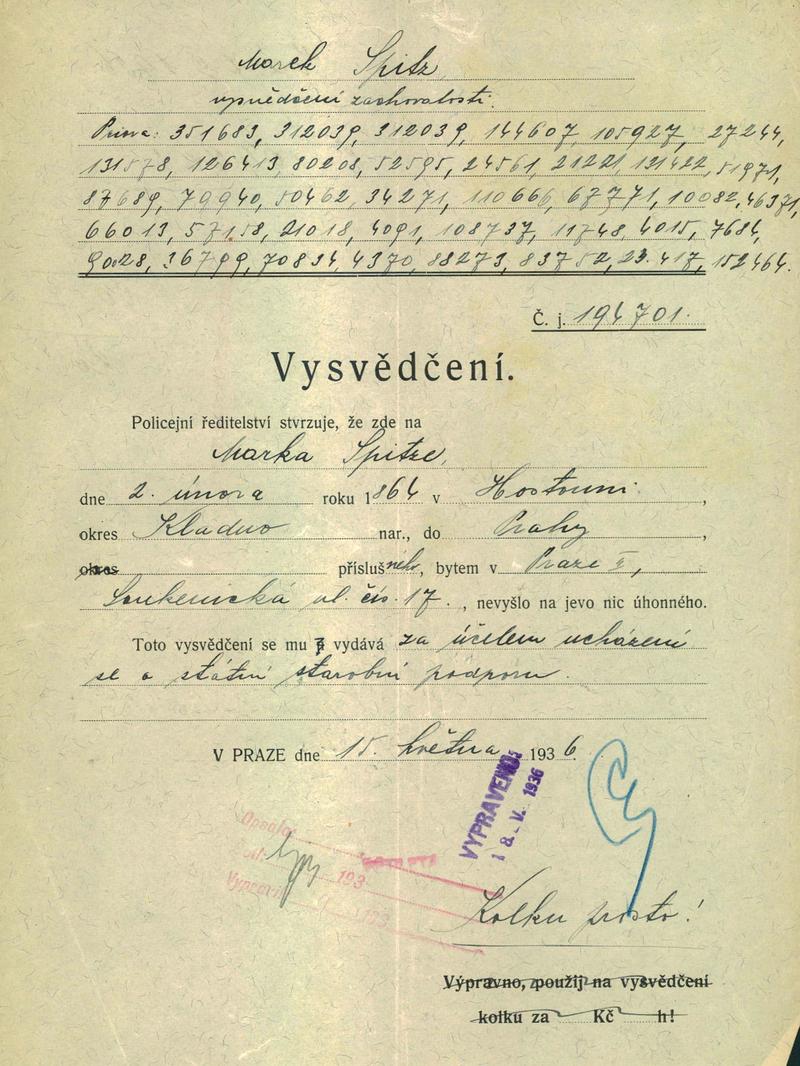 Marek Spitz
vysvědčení zachovalosti.
Priora: 351683, 312039, 312039, 144607, 105927, 27244,
131578, 126413, 80208, 52595, 24561, 21221, 131422, 51971,
87689, 79940, 50462, 34271, 110666, 67771, 10082, 46371,
66013, 57158, 21018, 4091, 108737, 11748, 4015, 7684,
9028, 36799, 70834, 4370, 88273, 83752, 23.417, 152464.
Č. j. 194701.
Vysvědčení.
Policejní ředitelství stvrzuje, že zde na
Marka Spitze,
dne 2. února roku 1864 v Hostouni,
okres Kladno nar., do Prahy,
okres příslušného, bytem v Praze II,
Soukenická ul. čís. 17., nevyšlo na jevo nic úhonného.
Toto vysvědčení se mu vydává za účelem ucházení
se o státní starobní podporu.
V PRAZE dne 15. května 1936.
VYPRAVENO:
18. V. 1936
Opsala:
193
Vypravil
193
Kolku prosto!
Výpravno, použij na vysvědčení
kolku za Kč h!